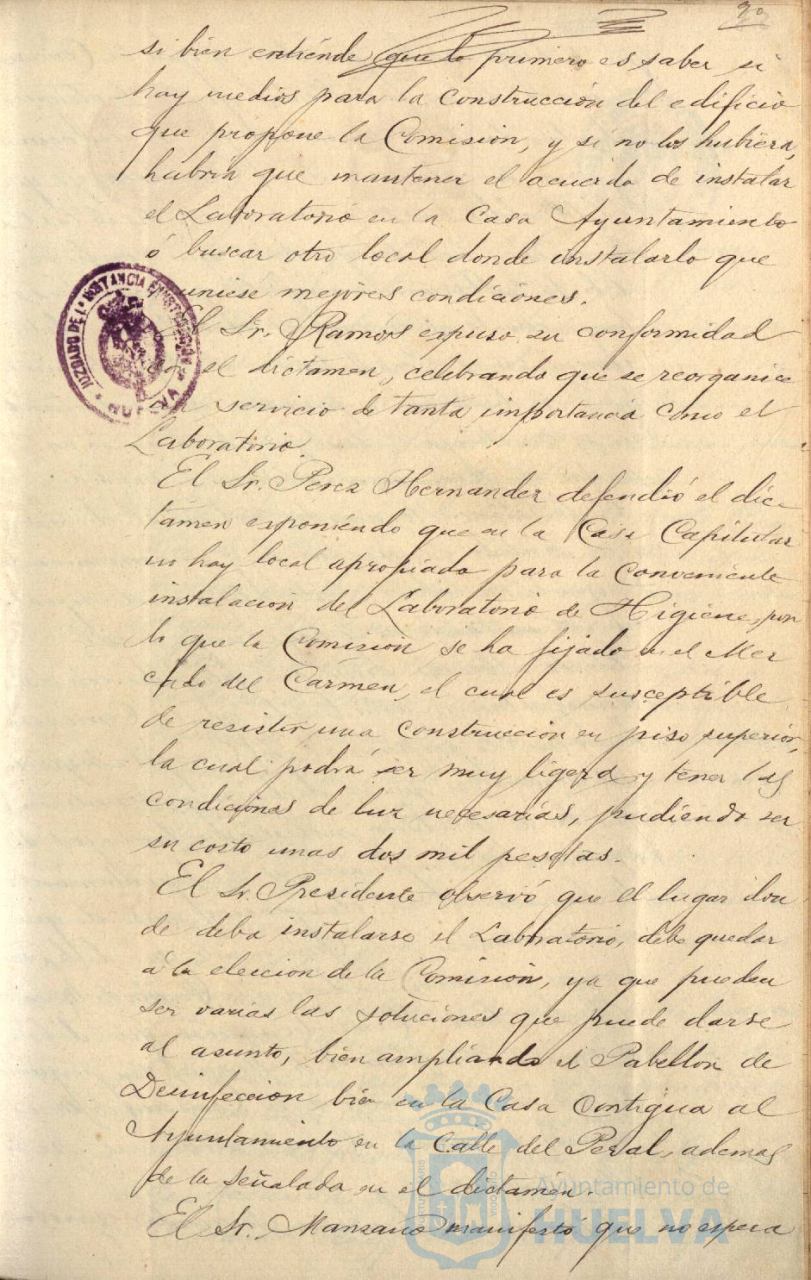 20
si bien entiende que lo primero es saber si
hay medios para la construcción del edificio
que propone la Comisión, y si no los hubiera,
habría que mantener el acuerdo de instalar
el Laboratorio en la Casa Ayuntamiento
ó buscar otro local donde instalarlo que
uniese mejores condiciones.
El Sr. Ramos expuso su conformidad
con el dictamen, celebrando que se reorganice
un servicio de tanta importancia como el
Laboratorio.
El Sr. Perez Hernandez defendió el dic-
támen exponiendo que en la Casa Capitular
no hay local apropiado para la conveniente
instalación del Laboratorio de Higiene, por
lo que la Comisión se ha fijado en el Mer
cado del Carmen, el cual es susceptible
de resistir una construcción en piso superior,
la cual podrá ser muy ligera y tener las
condiciones de luz necesarias, pudiendo ser
su costo unas dos mil pesetas.
El Sr. Presidente observó que el lugar don-
de deba instalarse el Laboratorio, debe quedar
á la eleccion de la Comisión, ya que pueden
ser varias las soluciones que puede darse
al asunto, bien ampliando el Pabellon de
Desinfeccion bien en la Casa contigua al
Ayuntamiento en la Calle del Peral, ademas
de la señalada en el dictamen.
El Sr. Manzano manifestó que no espera
JUZGADO DE 1ª INSTANCIA E INSTRUCCIÓN
HUELVA
Ayuntamiento de
HUELVA